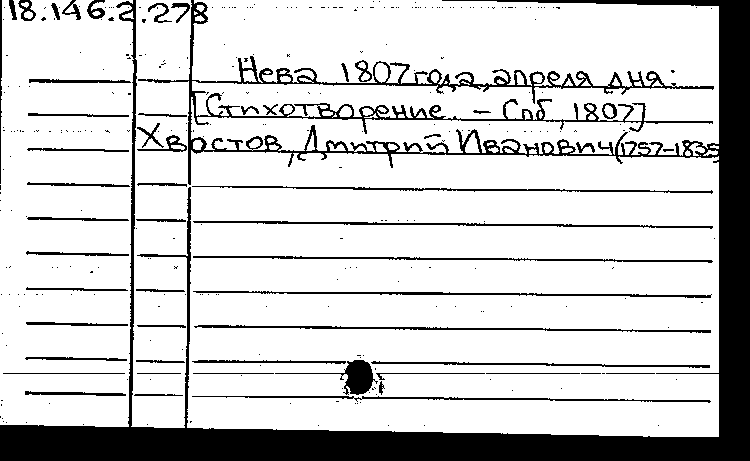 18.146.2.278
Нева 1807 года, апреля дня:
[Стихотворение. – Спб, 1807]
Хвостов, Дмитрий Иванович (1757–1835